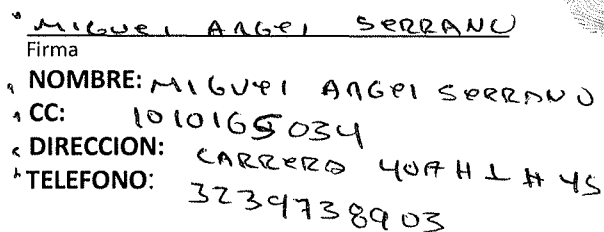 MIGUEL ANGEL SERRANO
Firma
NOMBRE: MIGUEL ANGEL SERRANO
CC: 1010165034
DIRECCION: CARRERA 40A H 1 # 45
TELEFONO: 3239738903